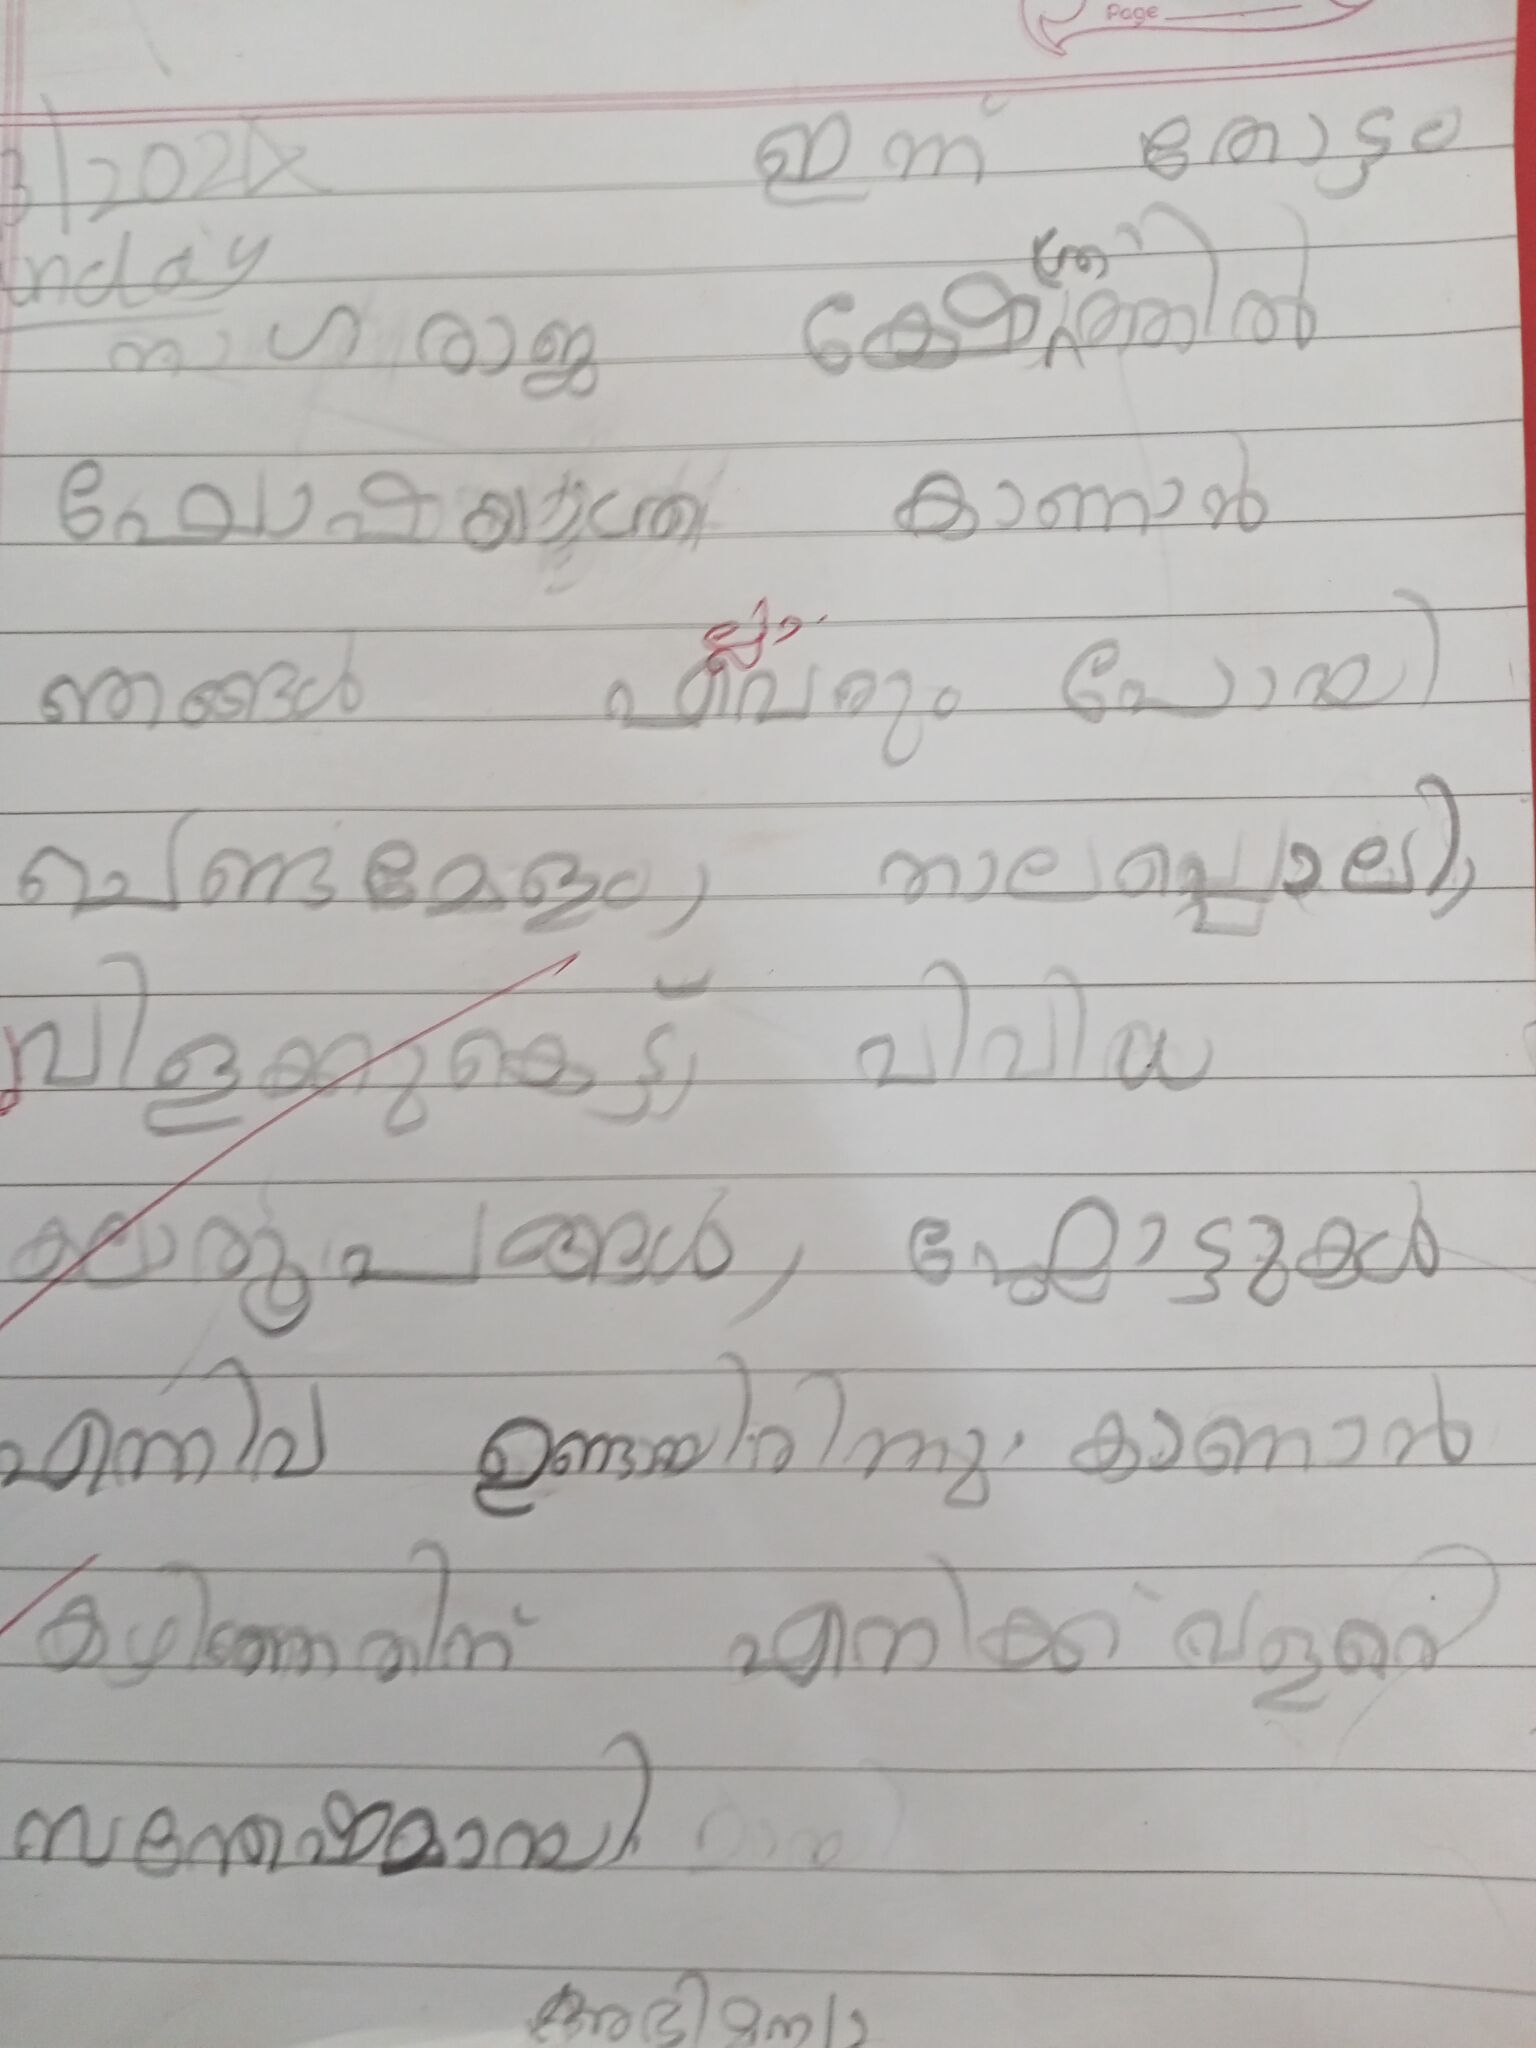 Page
3/2024 ഇന്ന് തോട്ടം
nday
നാഗ രാജ ക്ഷേത്രത്തിൽ
ഘോഷയാത്ര കാണാൻ
ഞങ്ങൾ എല്ലാവരും പോയി
ചെണ്ടമേളം, താലപ്പൊലി,
വിളക്കുകെട്ട്, വിവിധ
കലാരൂപങ്ങൾ, ഫ്ലോട്ടുകൾ
എന്നിവ ഉണ്ടായിരിന്നു. കാണാൻ
കഴിഞ്ഞതിന് എനിക്ക് വളരെ
സന്തോഷമായി.
അഭിമന്യു